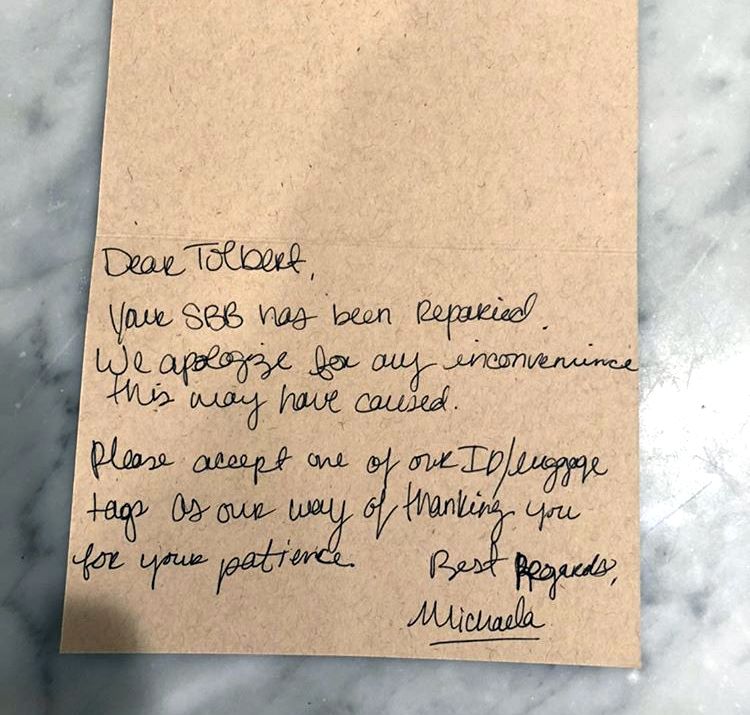 Dear Tolbert,
Your SBB has been Reparied.
We apologize for any inconvenience
this may have caused.
Please accept one of our ID/luggage
tags as our way of thanking you
for your patience.
Best Regards,
Michaela